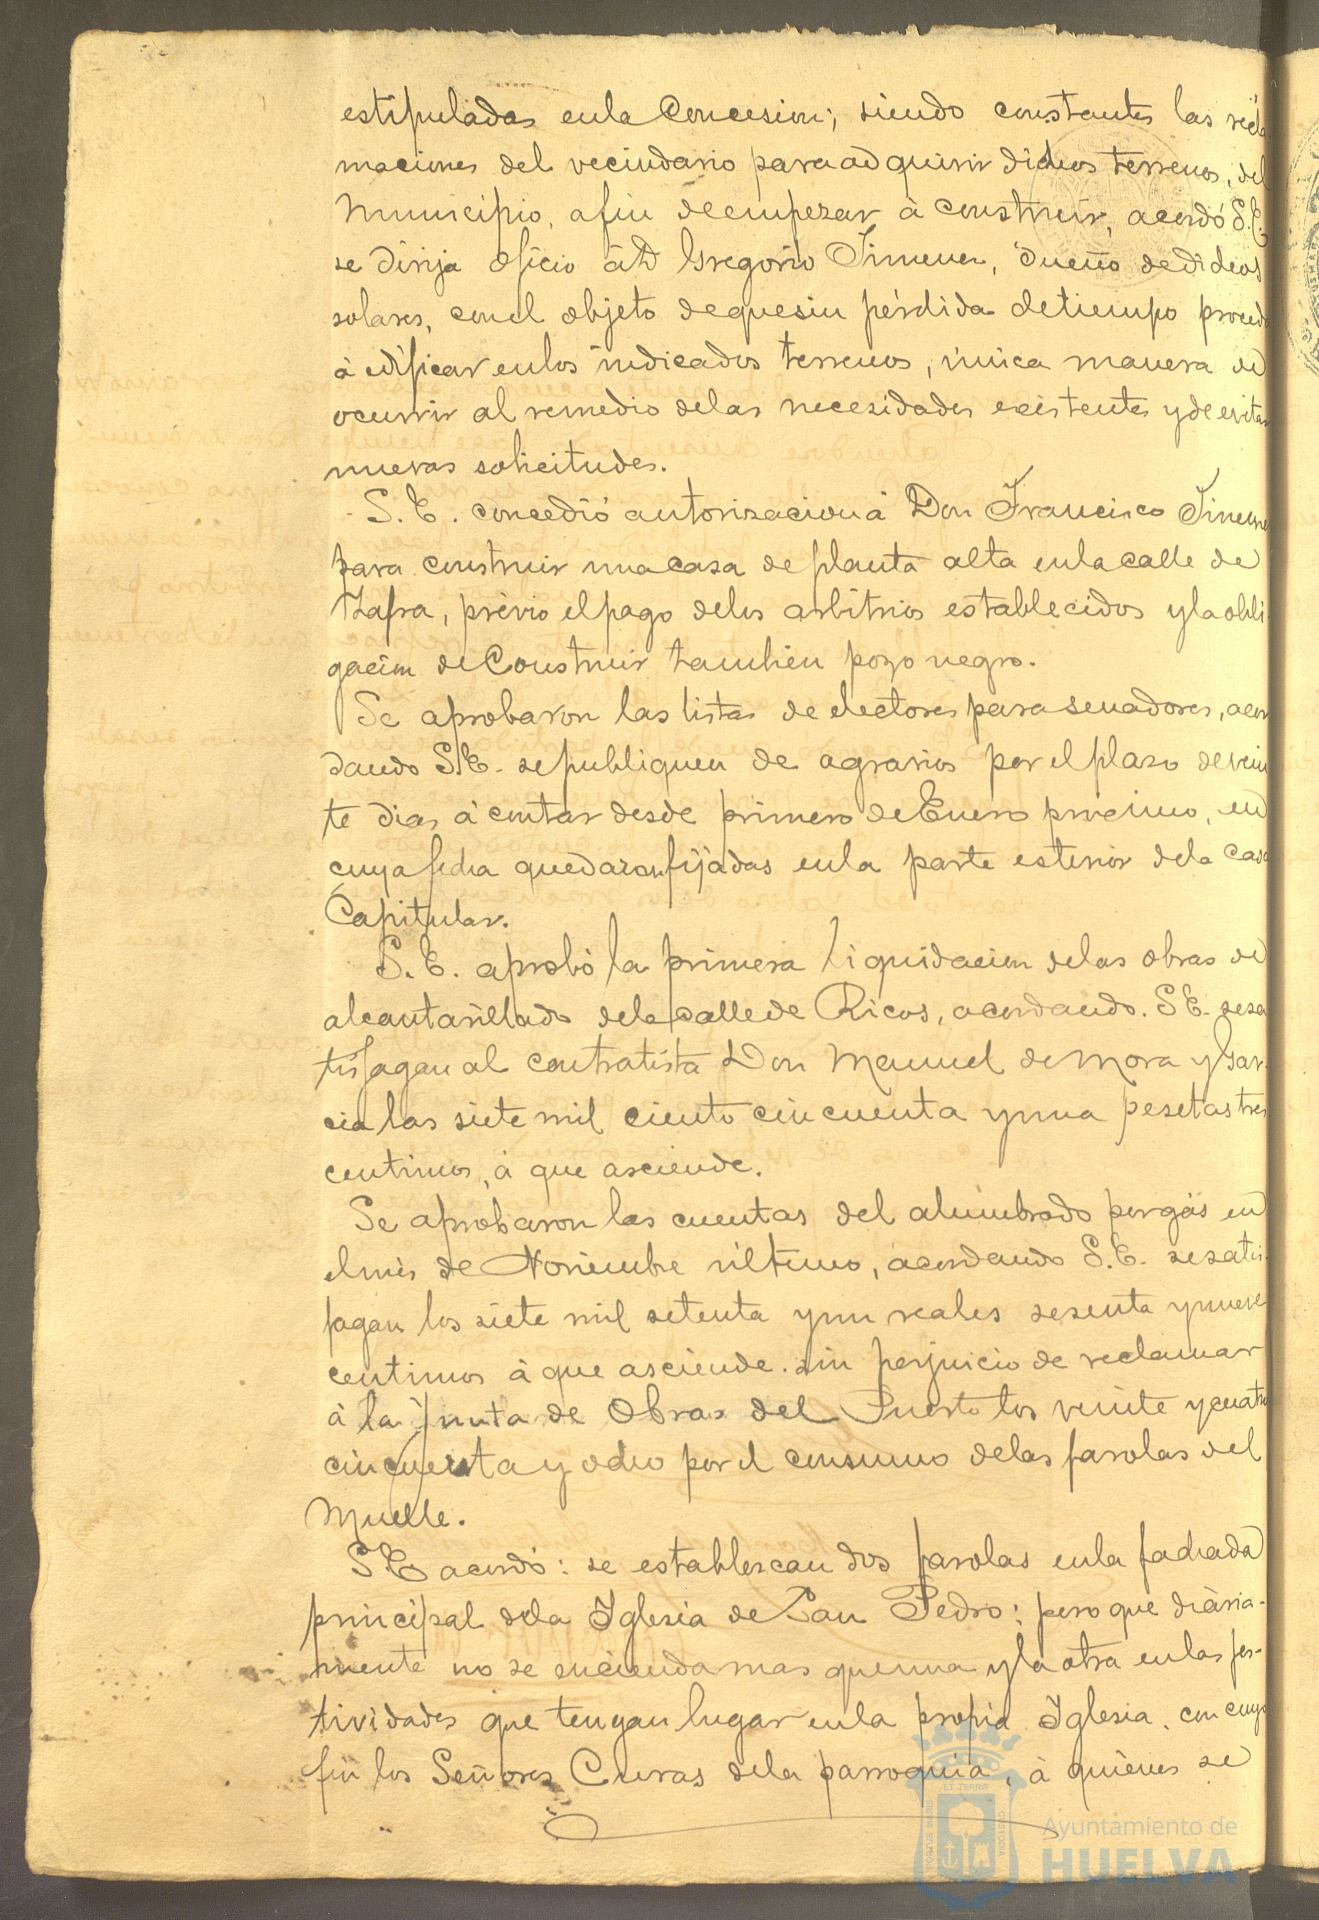 estipuladas en la Concesion; siendo constantes las recla
maciones del vecindario para adquirir dichos terrenos, del
Municipio, a fin de empezar à construir, acordó S.E.
se dirija oficio á D Gregorio Jimenez, dueño de dichos
solares, con el objeto de que sin pérdida de tiempo proceda
à edificar en los indicados terrenos, única manera de
ocurrir al remedio de las necesidades existentes y de evitar
nuevas solicitudes.
S.E. concedió autorizacion á Don Francisco Jimenez
para construir una casa de planta alta en la calle de
Zafra, prévio el pago de los arbitrios establecidos y la obli
gacion de Construir tambien pozo negro.
Se aprobaron las listas de electores para senadores, acor
dando S.E. se publiquen de agravios por el plazo de vein
te dias à contar desde primero de Enero procsimo, en
cuya fecha quedaran fijadas en la parte esterior de la Casa
Capitular.
S.E. aprobó la primera liquidacion de las obras de
alcantarillado de la calle de Ricos, acordando S.E. se sa
tisfagan al contratista Don Manuel de Mora y Gar-
cia las siete mil ciento cincuenta y una pesetas tres
centimos, à que asciende.
Se aprobaron las cuentas del alumbrado por gas en
el mes de Noviembre último, acordando S.E. se satis-
fagan los siete mil setenta y un reales sesenta y nueve
centimos à que asciende. sin perjuicio de reclamar
à la Junta de Obras del Puerto los veinte y cuatro
cincuenta y ocho por el consumo de las farolas del
Muelle.
S.E. acordó: se establezcan dos farolas en la fachada
principal de la Iglesia de San Pedro; pero que diària-
mente no se encienda mas que una y la otra en las fes-
tividades que tengan lugar en la propia Iglesia, con cuyo
fin los Señores Curas de la parroquia, à quienes se
Ayuntamiento de
HUELVA